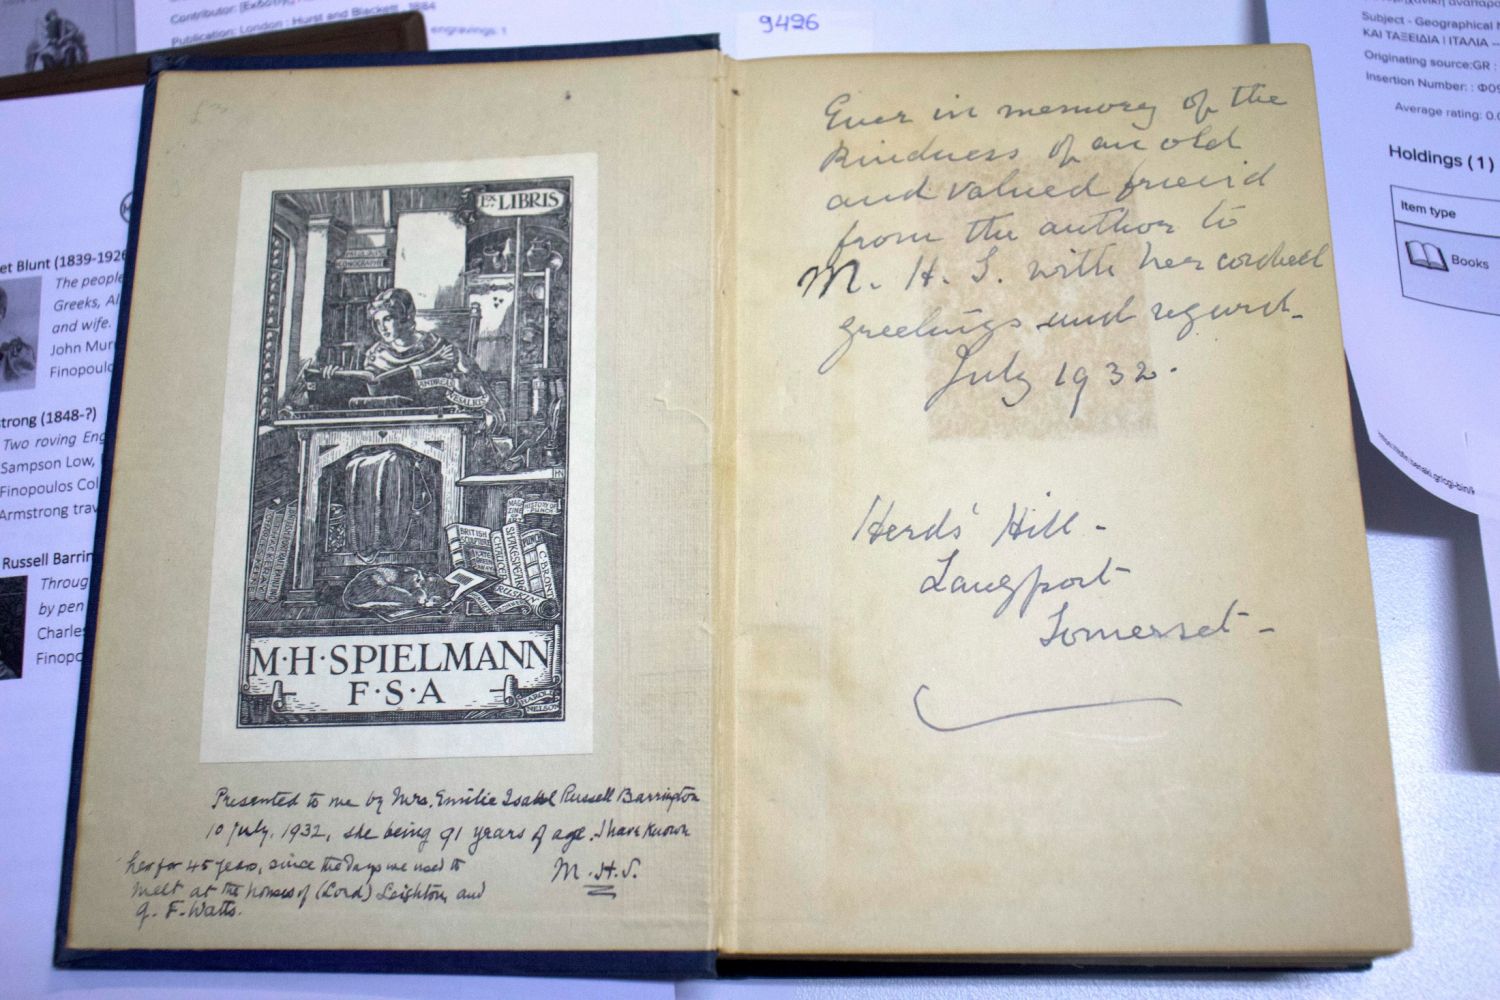 Contributor:
Publication: London : Hurst and Blackett, 1884
engravings: 1
9426
Subject - Geographical
ΚΑΙ ΤΑΞΕΙΔΙΑ | ΙΤΑΛΙΑ --
Originating source:GR :
Insertion Number: : Φ09
Average rating: 0.
Holdings (1)
Item type
Books
et Blunt (1839-1926
The people
Greeks, Al
and wife.
John Mur
Finopoulo
trong (1848-?)
Two roving Eng
Sampson Low,
Finopoulos Col
Armstrong trav
Russell Barrin
Throug
by pen
Charles
Finopo
EX LIBRIS
ANDREAS
VESALIUS
BRITISH
SCULPTURE
CHAUCER
SHAKESPEARE
RUSKIN
MAGAZINE
OF ART
HISTORY OF
PUNCH
PUNCH
C. BRONT
HN
M·H·SPIELMANN
F·S·A
HAROLD
NELSON
Presented to me by Mrs. Emilie Isabel Russell Barrington
10 July, 1932, she being 91 years of age. I have known
her for 45 years, since the days we used to
meet at the houses of (Lord) Leighton, and
G. F. Watts.
M.H.S.
Ever in memory of the
kindness of an old
and valued friend
from the author to
M. H. S. with her cordial
greetings and regard.
July 1932.
Herds' Hill -
Langport
Somerset -